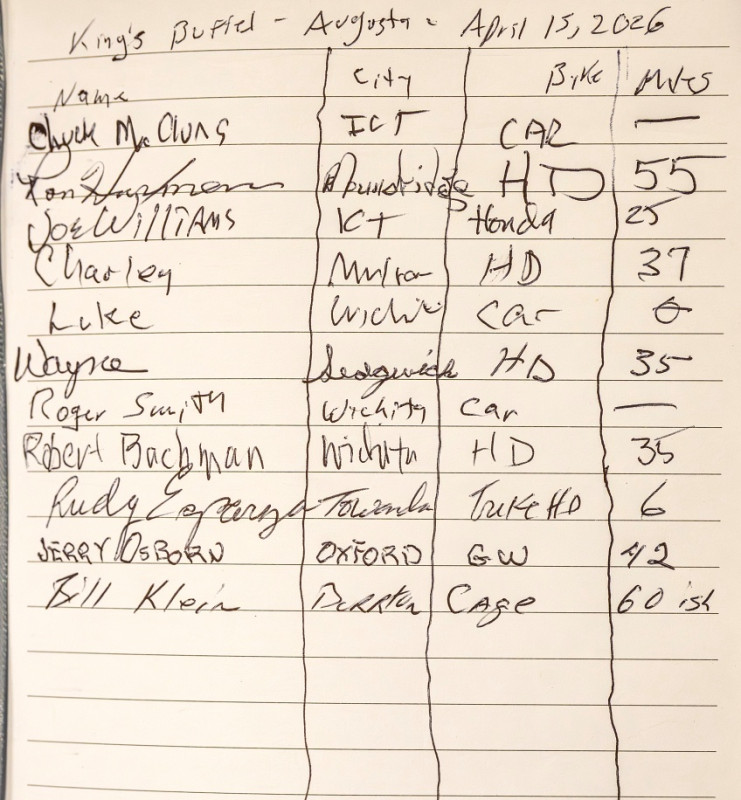 King's Buffet - Augusta - April 15, 2026
Name City Bike Miles
Chuck McClung ICT CAR —
Ron Moundridge HD 55
Joe Williams ICT Honda 25
Charley Mulvane HD 37
Luke Wichita Car 0
Wayne Sedgwick HD 35
Roger Smith Wichita Car —
Robert Bachman Wichita HD 35
Rudy Esparza Towanda Trike HD 6
JERRY OSBORN OXFORD GW 42
Bill Klein Cage 60 ish